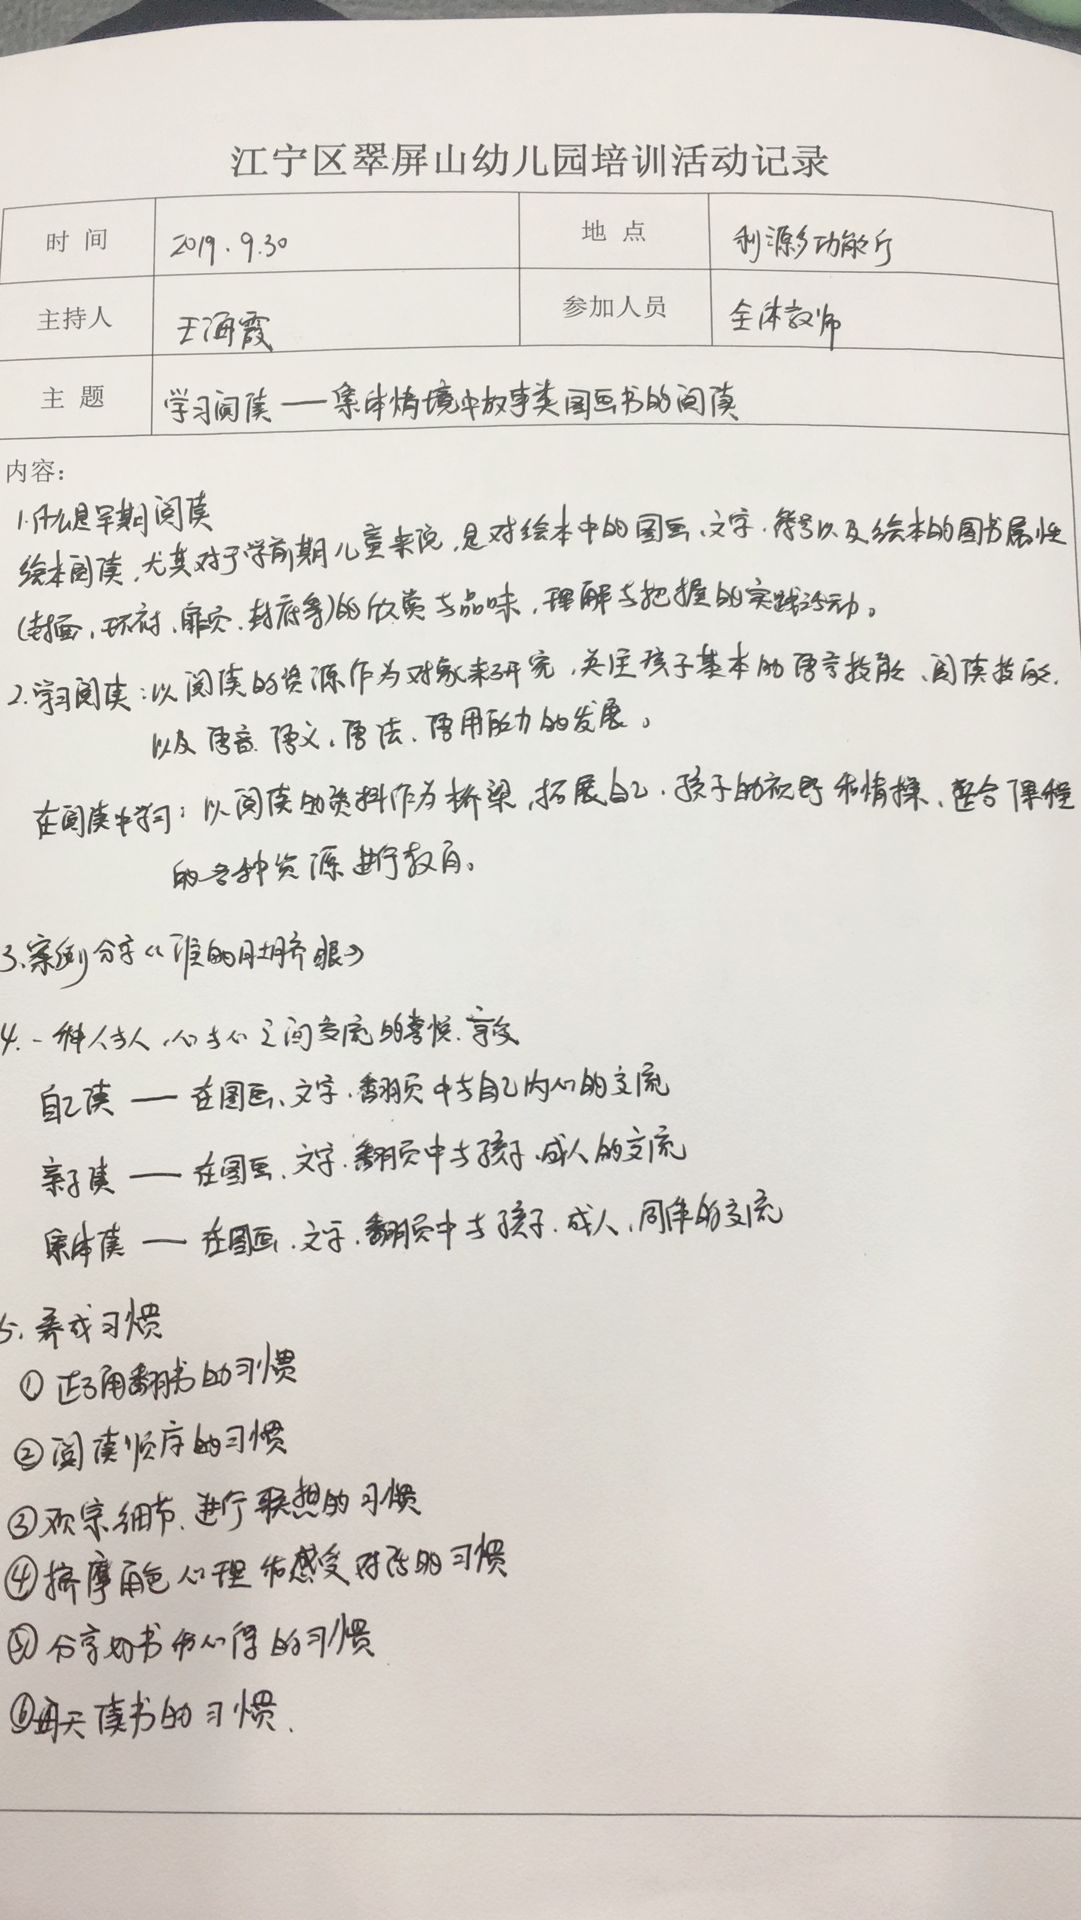 江宁区翠屏山幼儿园培训活动记录
时间 2019.9.30 地点 利源多功能厅
主持人 王海霞 参加人员 全体教师
主题 学习阅读——集体情境中故事类图画书的阅读
内容：
1.什么是早期阅读
绘本阅读,尤其对于学前期儿童来说,是对绘本中的图画、文字、符号以及绘本的图书属性
(封面、环衬、扉页、封底等)的欣赏与品味,理解与把握的实践活动。
2.学习阅读:以阅读的资源作为对象来研究,关注孩子基本的语言技能、阅读技能,
以及语音、语义、语法、语用能力的发展。
在阅读中学习:以阅读的资料作为桥梁,拓展自己、孩子的视野和情操、整合课程
的各种资源进行教育。
3.案例分享《谁的肚脐眼》
4.一种人与人,心与心之间交流的喜悦、享受
自己读——在图画、文字、翻页中与自己内心的交流
亲子读——在图画、文字、翻页中与孩子、成人的交流
集体读——在图画、文字、翻页中与孩子、成人、同伴的交流
5.养成习惯
①正确翻书的习惯
②阅读顺序的习惯
③观察细节、进行联想的习惯
④揣摩角色心理和感受对话的习惯
⑤分享好书和心得的习惯
⑥每天读书的习惯.